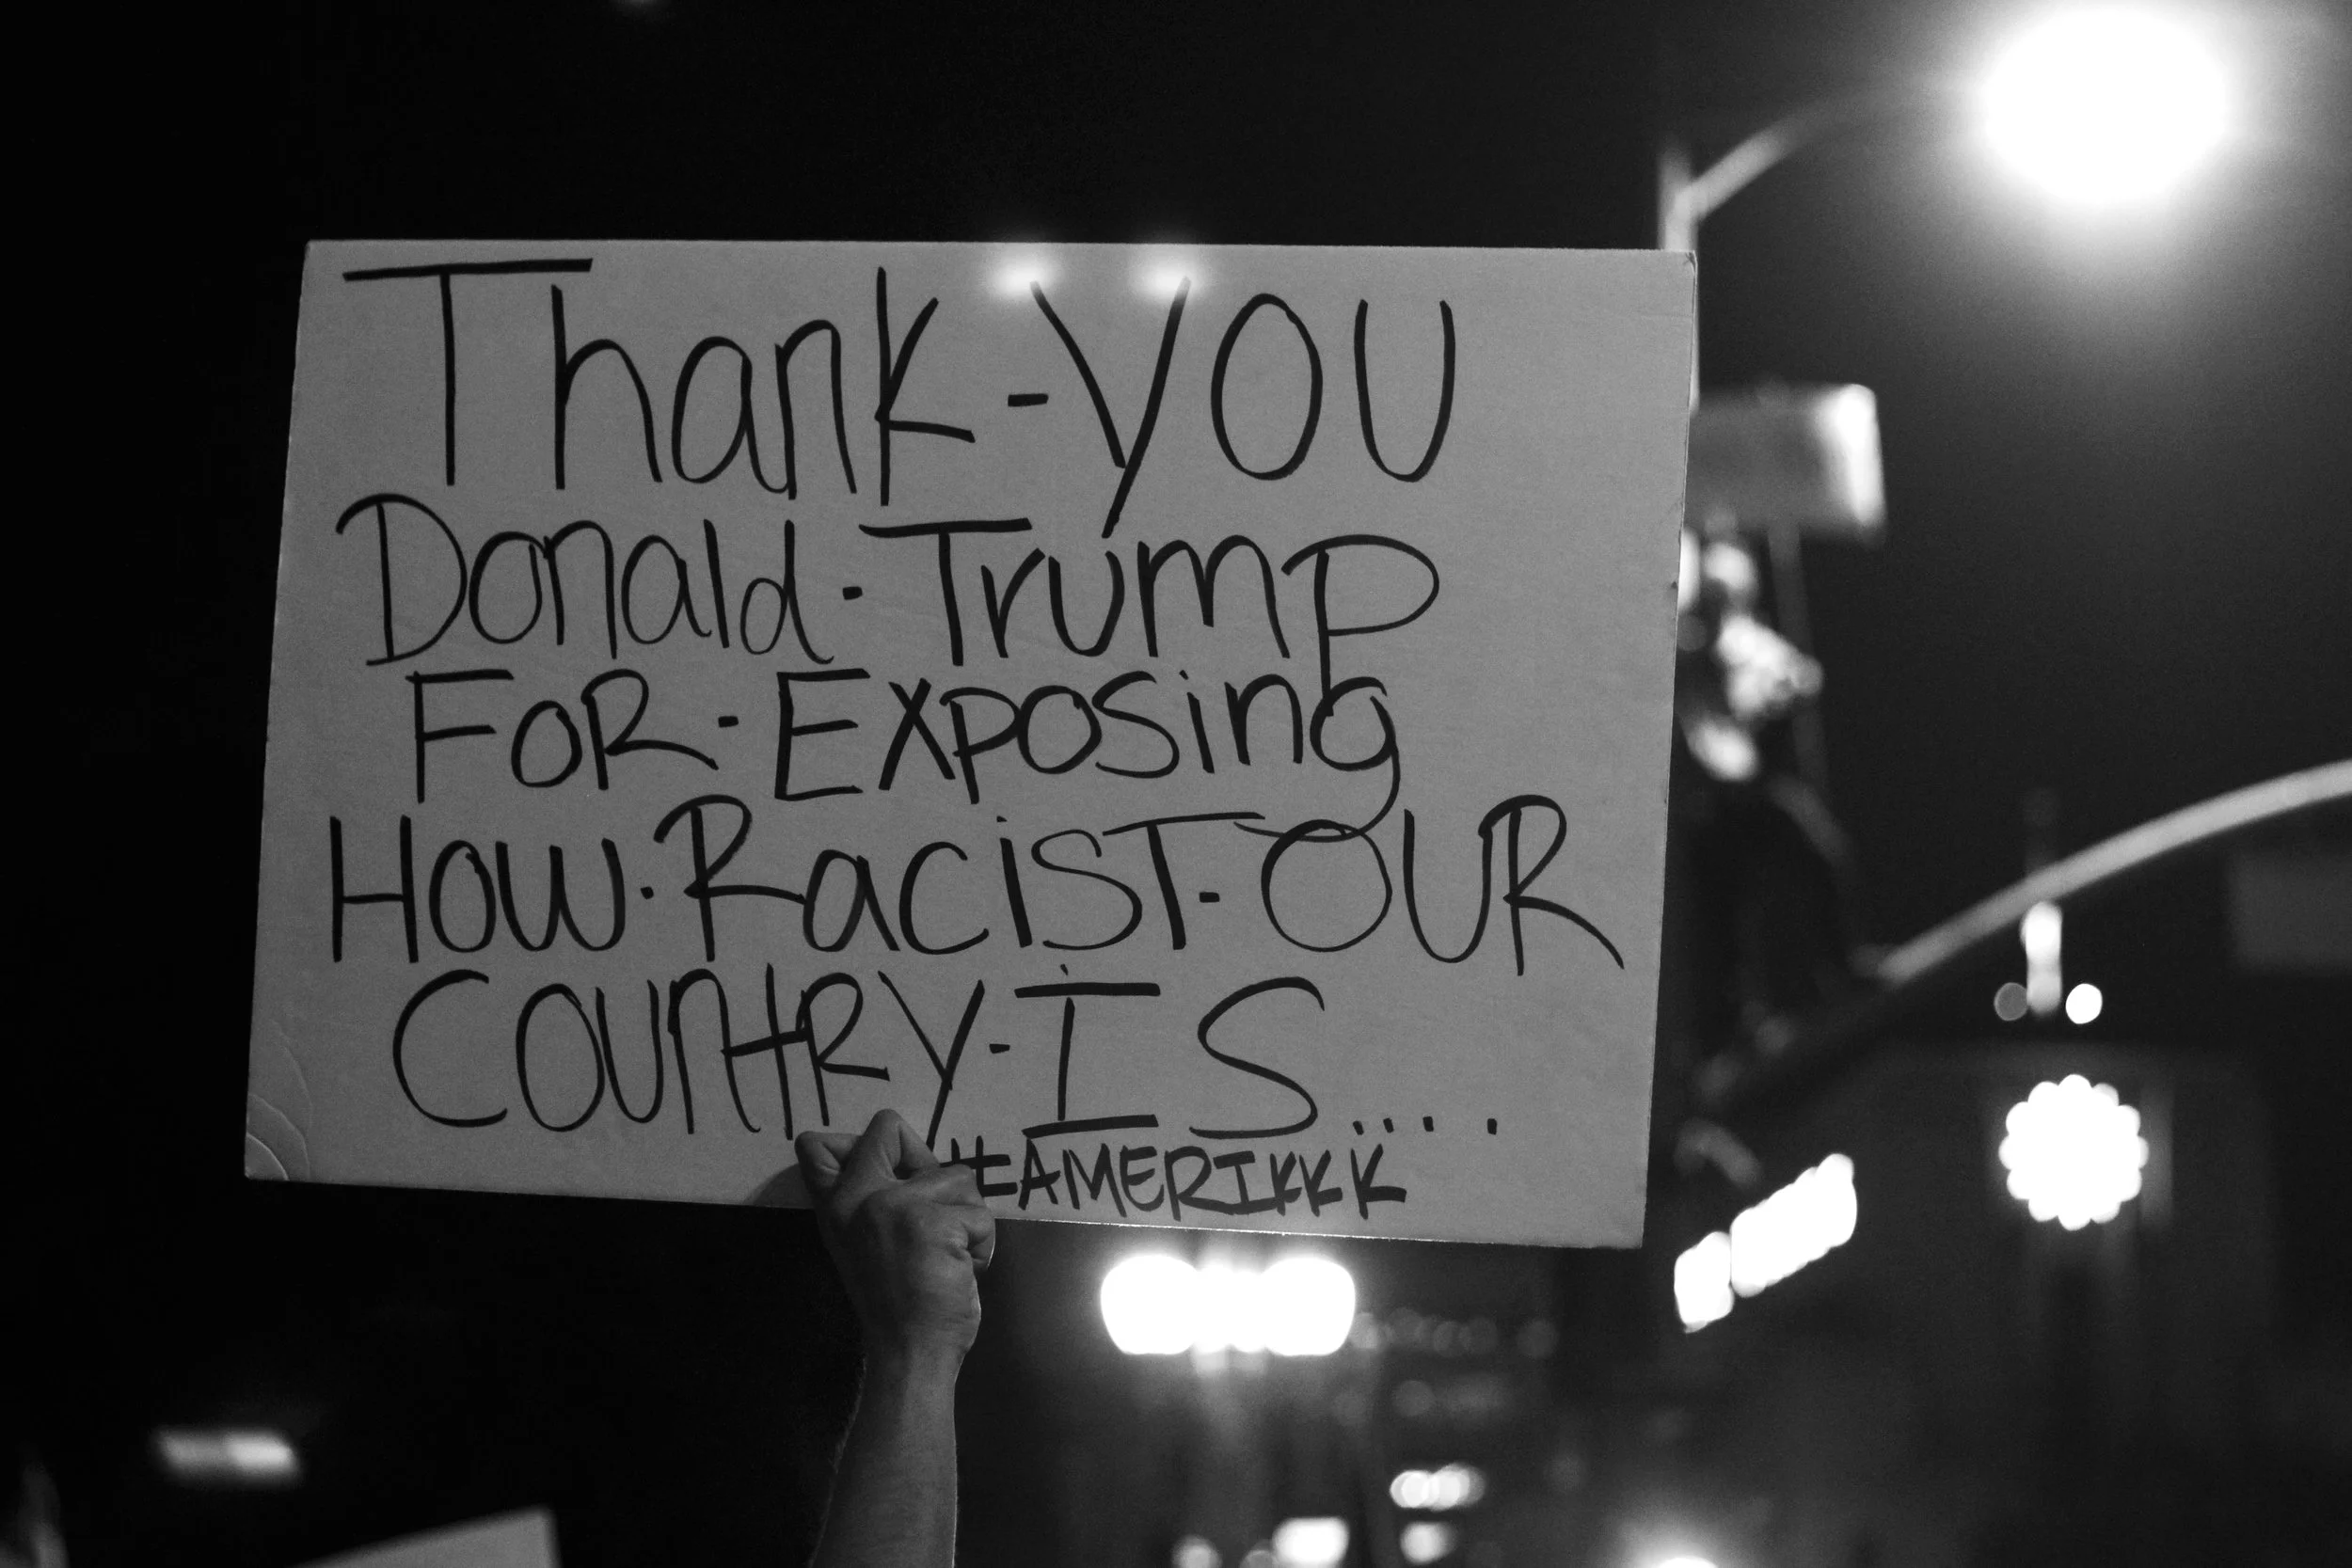 Thank-YOU
Donald-Trump
FOR-EXPOSing
HOW-RacisT-OUR
COUntRY-IS....
#AMERIKKK